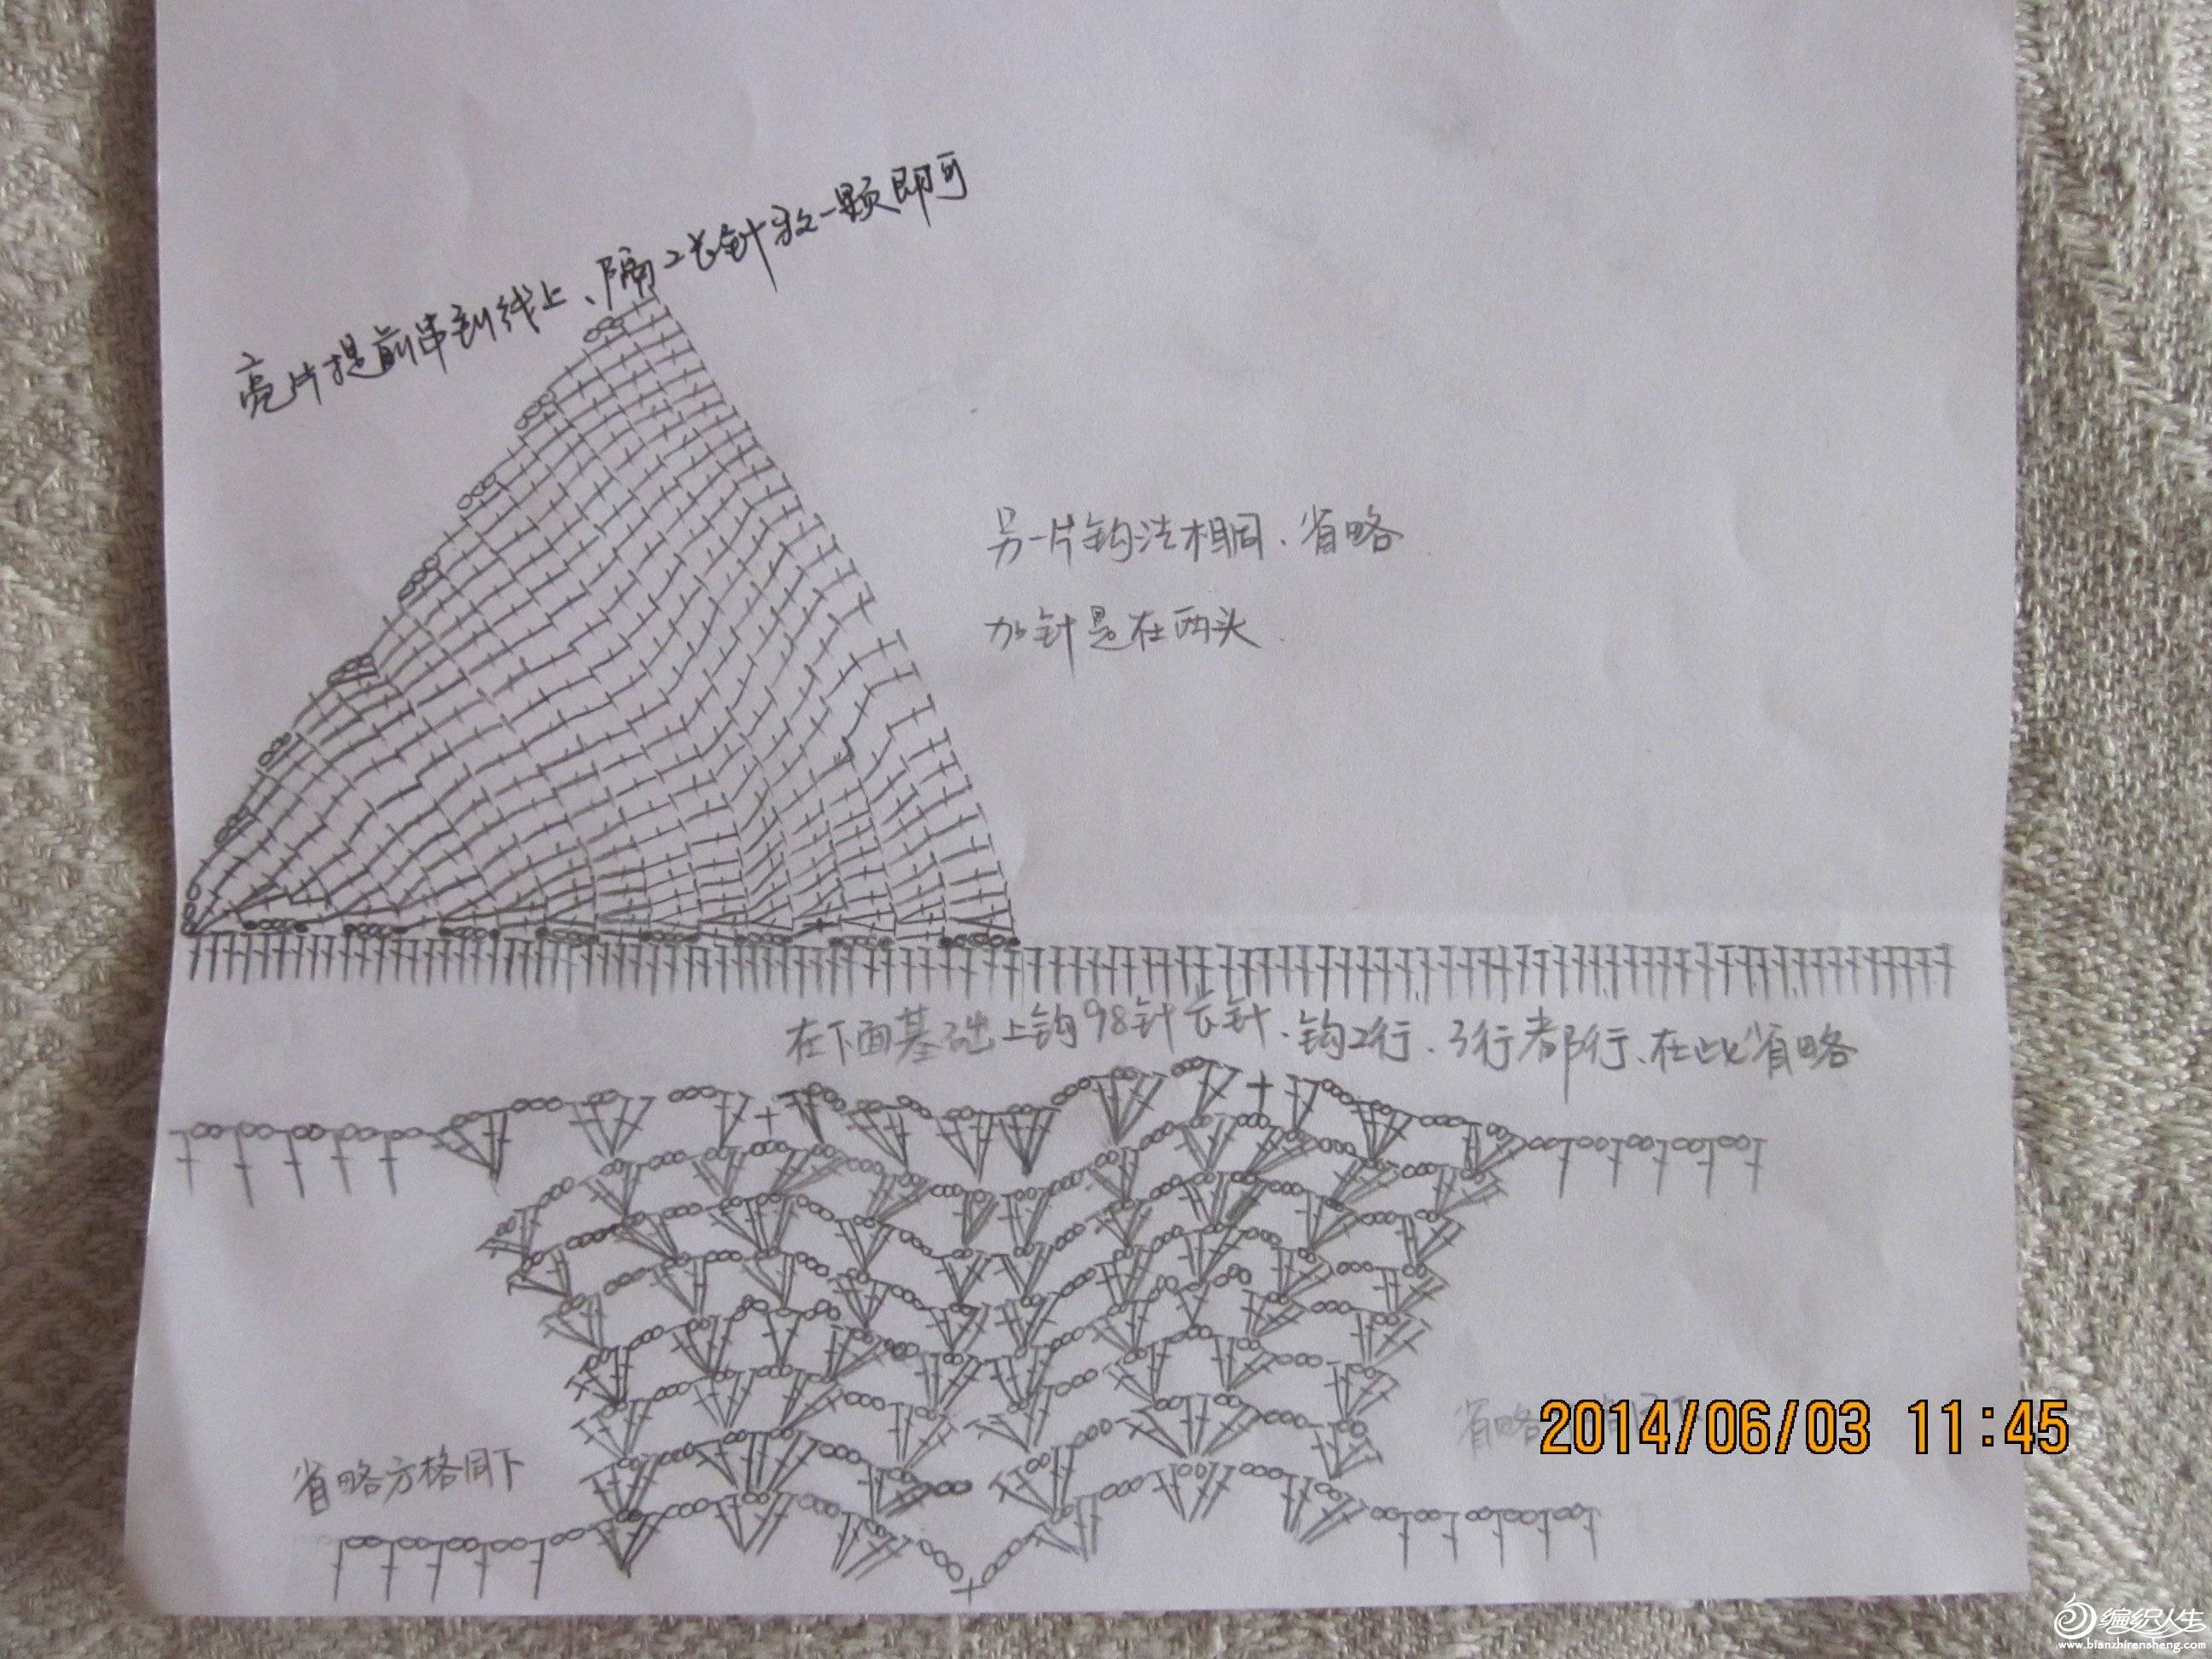 亮片提前串到线上、隔2长针放一颗即可
另一片钩法相同、省略
加针是在两头
在下面基础上钩98针长针、钩2行、3行都行、在此省略
省略
2014/06/03 11:45
省略方格同下
编织人生
www.bianzhirensheng.com